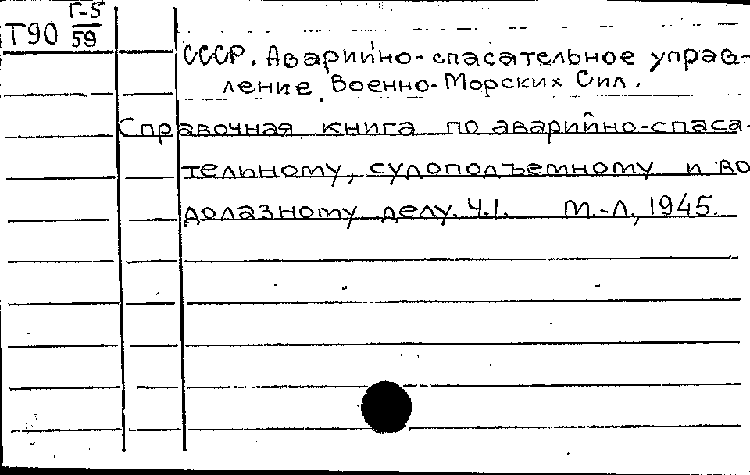 Г-5
Т90 59
СССР. Аварийно-спасательное управ-
ление Военно-Морских Сил.
Справочная книга по аварийно-спаса-
тельному, судоподъемному и во
долазному делу. Ч.I. М.-Л., 1945.